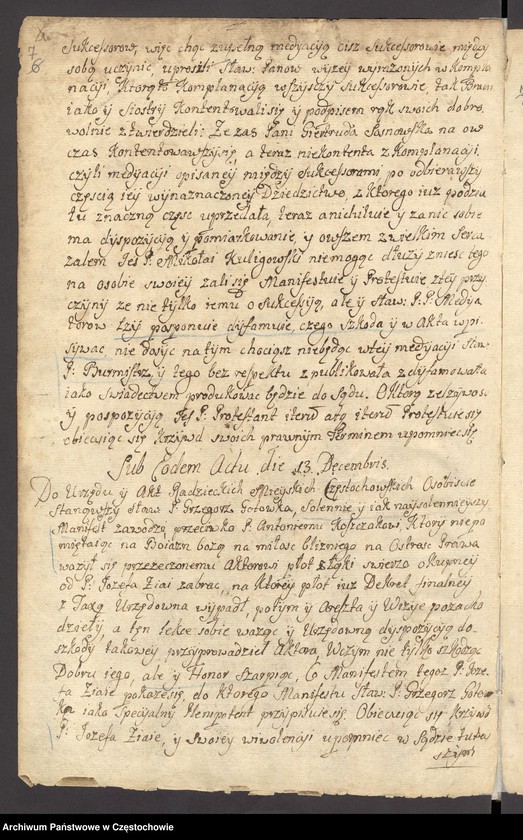 7
8
Sukcessorow, więc chcąc zupełną medyacyją cisz Sukcessorowie między
sobą uczynić, uprosili Sław: Panow wyżey wyrażonych w kompla-
nacyi, ktorą to Komplanacyią wszyscy Sukcessorowie, tak Bracia
iako y Siostry kontentowali się y podpisem rąk swoich dobro-
wolnie ztwierdzieli: Ze zas Pani Giertruda Sosnowska na ow
czas kontentowawszy się, a teraz niekontenta z Komplanacyi,
czyli medyacyi opisaney między Sukcessorami, po odbierawszy
częscią iey wyznaczoney Dziedzictwo, z ktorego iuz podzia-
łu znaczną częsc uprzedała, teraz anichiluie y za nic sobie
ma dyspozycyią y pomiarkowanie, y owszem z wielkim serca
zalem Jes P. Mikołai Kuligowski niemogąc dłuży zniesc tego
na osobie swoiey zali się Manifestuie y Protestuie z tey przy
czyny ze nie tylko iemu o sukcessyią, ale y Sław: P.P. Medya
torow lzy posponuie dyfamuie, czego szkoda y w Akta wpi-
sywac nie dosyc na tym chociasz niebędąc w tey medyacyi Sław
P: Burmistrz, y tego bez respektu z publikowała z dyfamowała
iako swiadectwem produkowac będzie do Sądu. O ktorą zelzywosc
y pospozycyią Jes P: Protestant iterum atq iterum Protestuie się
obiecuiąc się krzywd swoich prawnym Terminem upomniec się.
Sub Eodem Actu die 13. Decembris.
Do Urzędu y Akt Radzieckich Mieyskich Częstochowskich Osobiscie
Stanąwszy Sław: P. Grzegorz Gotowka, Solennie y iak naysolennieyszy
Manifest zawodzi, przeciwko P: Antoniemu Koszczakowi, ktory nie pa
miętaiąc na Boiazn bozą na miłosc blizniego na Ostrosc Prawa
wazył się przerzeczonemu Aktorowi płot z łąki swiezo okupioney
od P: Jozefa Ziai zabrac, na ktorey płot iuz Dekret finalney
z Taxą Urzędowna wypadł, potym y Areszta y Wizye pozacho
dzieły, a ten lekce sobie waząc y Urzędowną dyspozycyią do
szkody takowey przyprowadzieł Aktora, Wczym nie tylko szkodząc
Dobru iego, ale y Honor szarpiąc, Co Manifestem tegoz P: Joze
fa Ziaie pokazesię, do ktorego Manifestu Sław: P: Grzegorz Goto
wka iako specyalny Plenipotent przypisuie się. Obiecuiąc się krzywd
P: Jozefa Ziaie, y swoiey wiolencyi upomniec w Sądzie tutey
szym
Archiwum Państwowe w Częstochowie